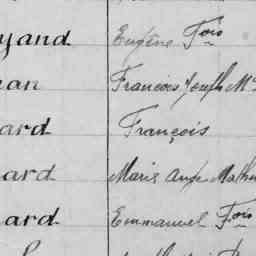 yand Eugène Fois
ean Francois Joseph M
ard François
ard Marie Ange Mathu
ard Emmanuel Fois